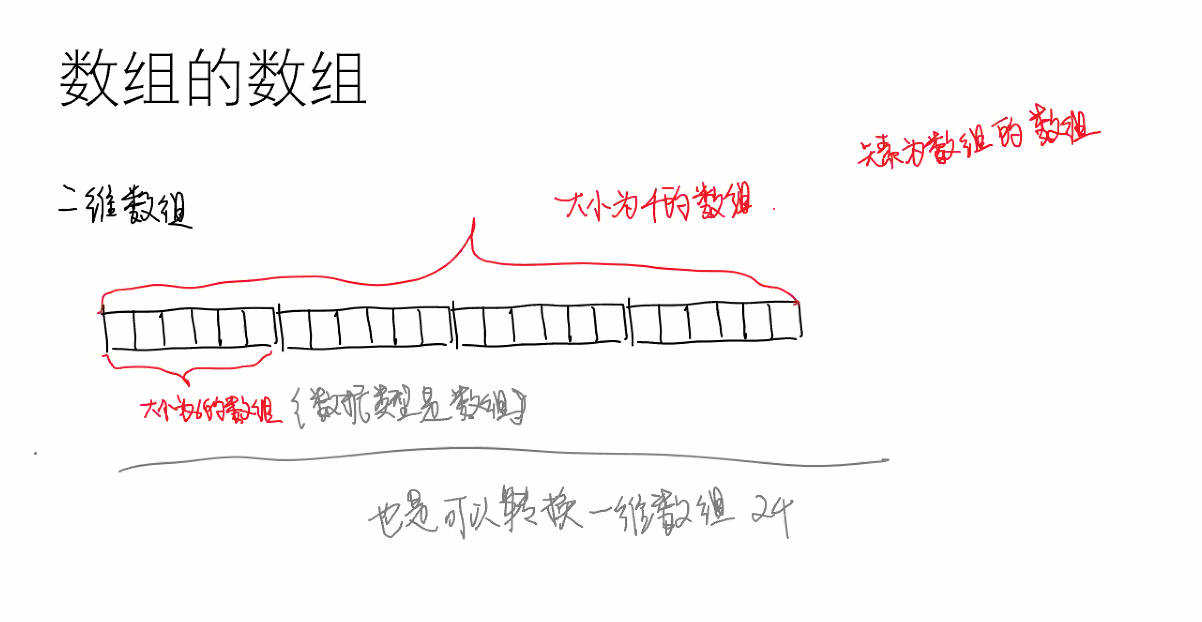 数组的数组
元素为数组的数组
二维数组
大小为4的数组
大小为6的数组 (数据类型是数组)
也是可以转换一维数组 24